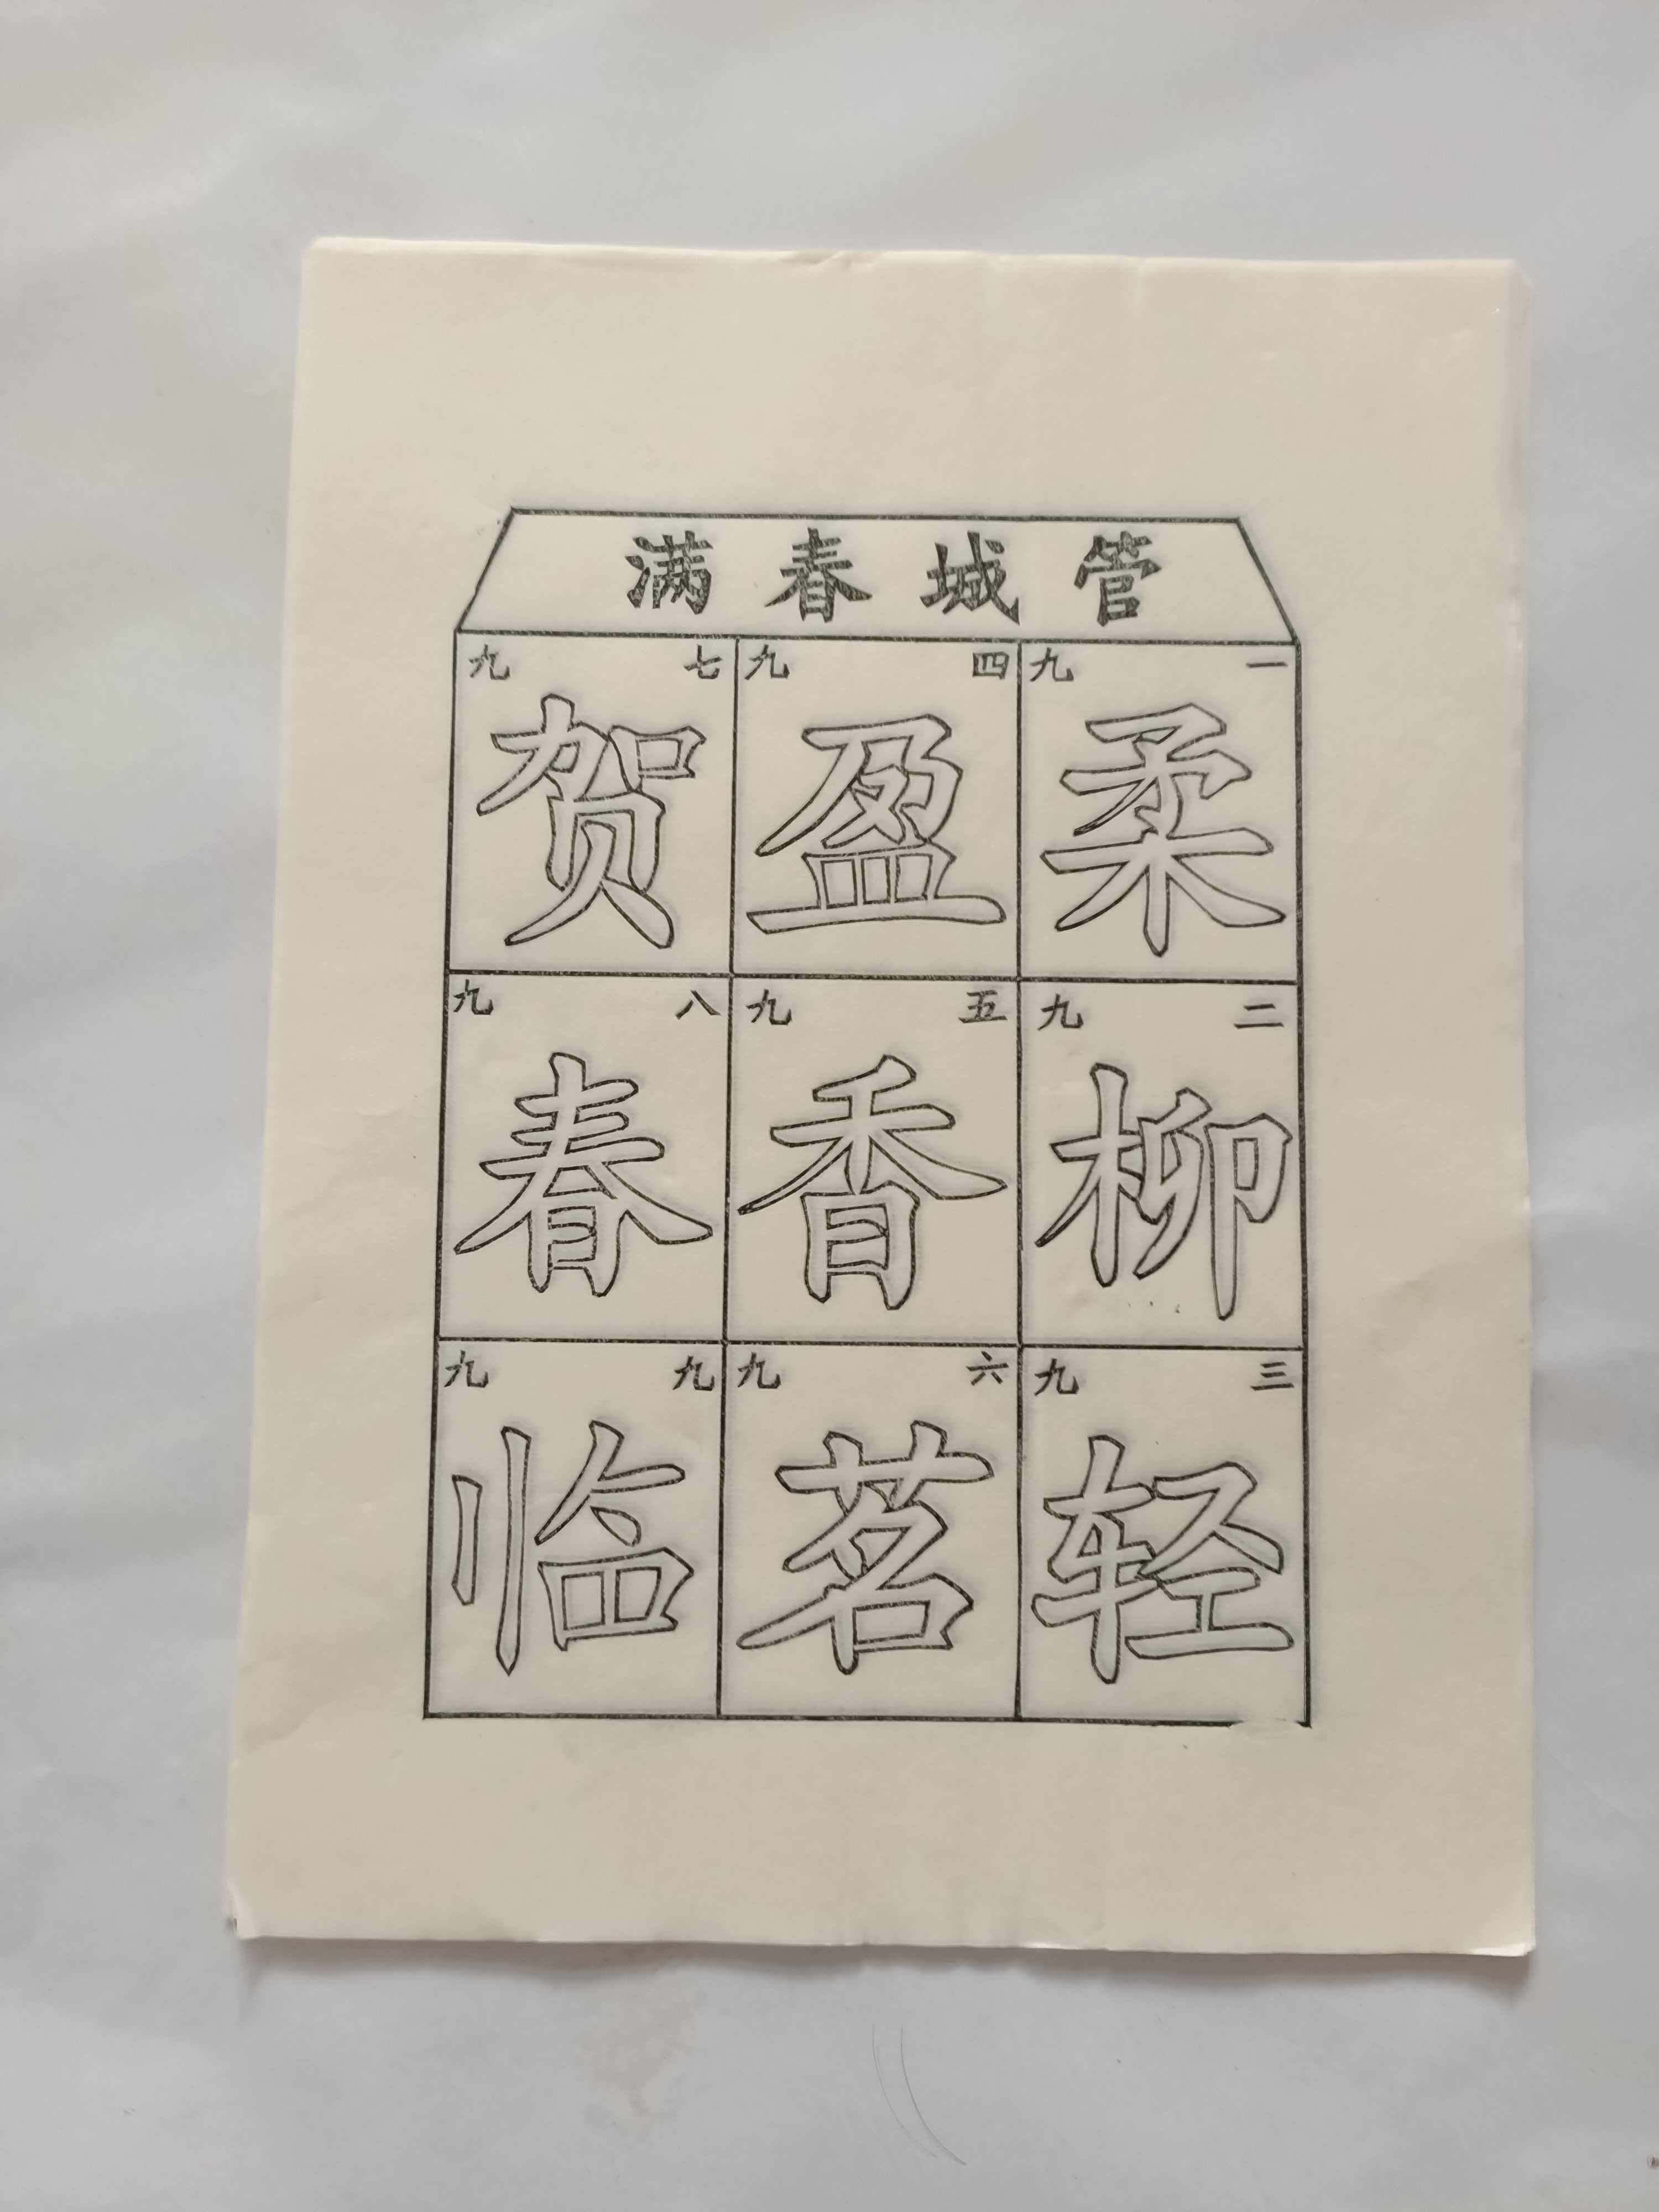 管城春满
一九
柔
二九
柳
三九
轻
四九
盈
五九
香
六九
茗
七九
贺
八九
春
九九
临